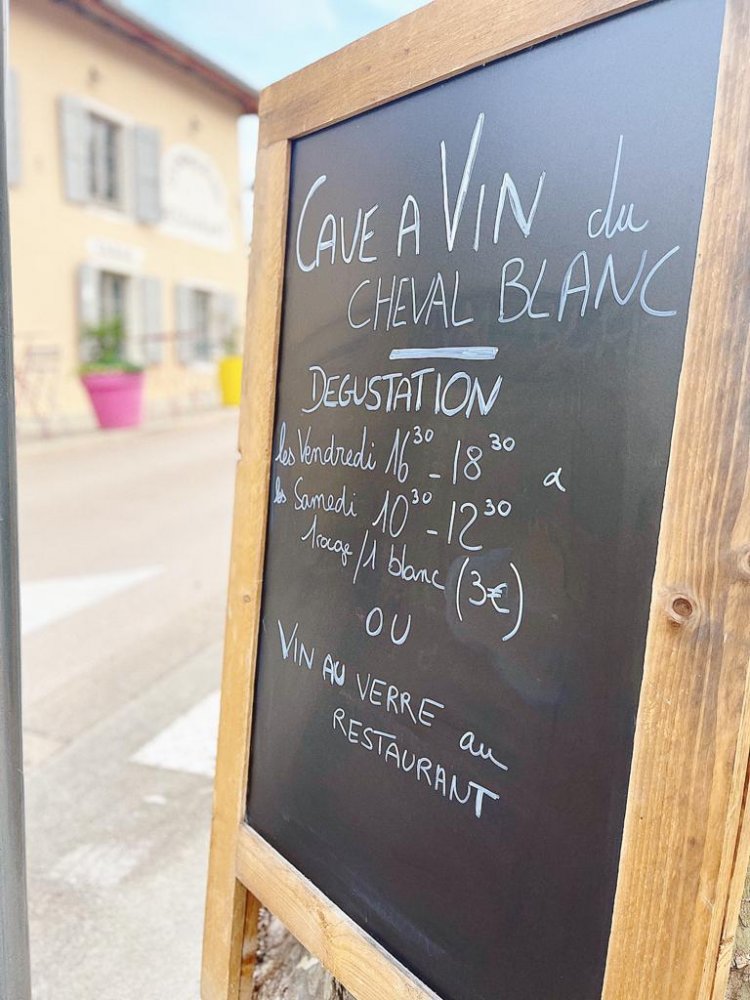 CAVE A VIN du
CHEVAL BLANC
DEGUSTATION
les Vendredi 16³⁰ - 18³⁰ a
les Samedi 10³⁰ - 12³⁰
1 rouge / 1 blanc (3€)
OU
VIN AU VERRE au
RESTAURANT